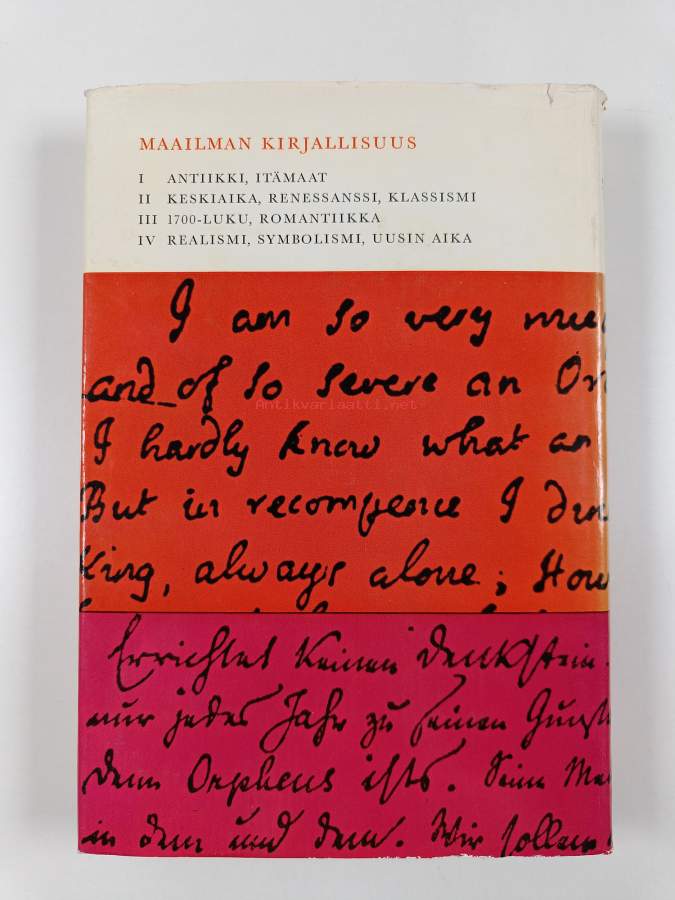 MAAILMAN KIRJALLISUUS
I ANTIIKKI, ITÄMAAT
II KESKIAIKA, RENESSANSSI, KLASSISMI
III 1700-LUKU, ROMANTIIKKA
IV REALISMI, SYMBOLISMI, UUSIN AIKA
I am so very muc
and of so severe an Or
Antikvariaatti.net
I hardly know what an
But in recompence I din
King, always alone; How
Errichtet keinen Denkstein.
nur jedes Jahr zu seinen Gunst
denn Orpheus ists. Seine Me
in dem und dem. Wir sollen